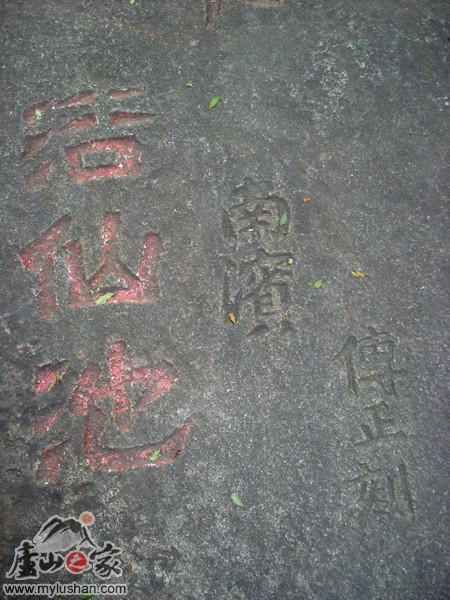 活仙池
南濱
傅正刻
庐山之家
www.mylushan.com